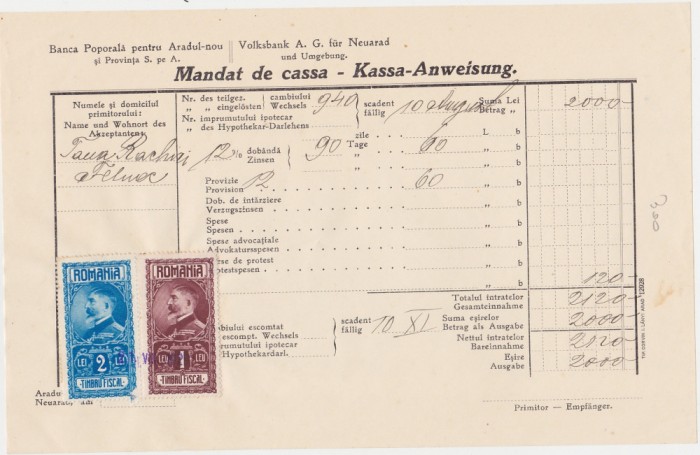 Banca Poporală pentru Aradul-nou
și Provința S. pe A.
Volksbank A. G. für Neuarad
und Umgebung.
Mandat de cassa - Kassa-Anweisung.
Numele și domicilul
primitorului:
Name und Wohnort des
Akzeptanten:
Nr. des teilgez. cambiului
„ „ eingelösten Wechsels 940
scadent
fällig 10 August
Suma Lei
Betrag „ 2000
Nr. imprumutului ipotecar
„ des Hypothekar-Darlehens
zile L. b
12 % dobândă
Zinsen 90 Tage 60 „ b
„ „ b
Provizie
Provision 12 60 „ b
Dob. de întârziere
Verzugszinsen „ b
Spese
Spesen „ b
Spese advocațiale
Advokatursspesen „ b
se de protest
otestspesen „ b
„ b 120
Totalul intratelor
Gesamteinnahme 2120
biului escomtat
escompt. Wechsels
scadent
fällig 10 XI
Suma eșirelor
Betrag als Ausgabe 2000
prumutului ipotecar
Hypothekardarl.
Nettul intratelor
Bareinnahme 2120
Eșire
Ausgabe 2000
ROMANIA
LEI 2 LEI
TIMBRU FISCAL
ROMANIA
LEI 1 LEI
TIMBRU FISCAL
Aradu
Neuarad, am
Primitor — Empfänger.
300